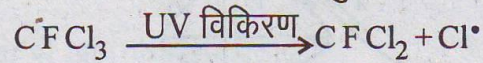 CFCl₃ UV विकिरण→ CFCl₂ + Cl•